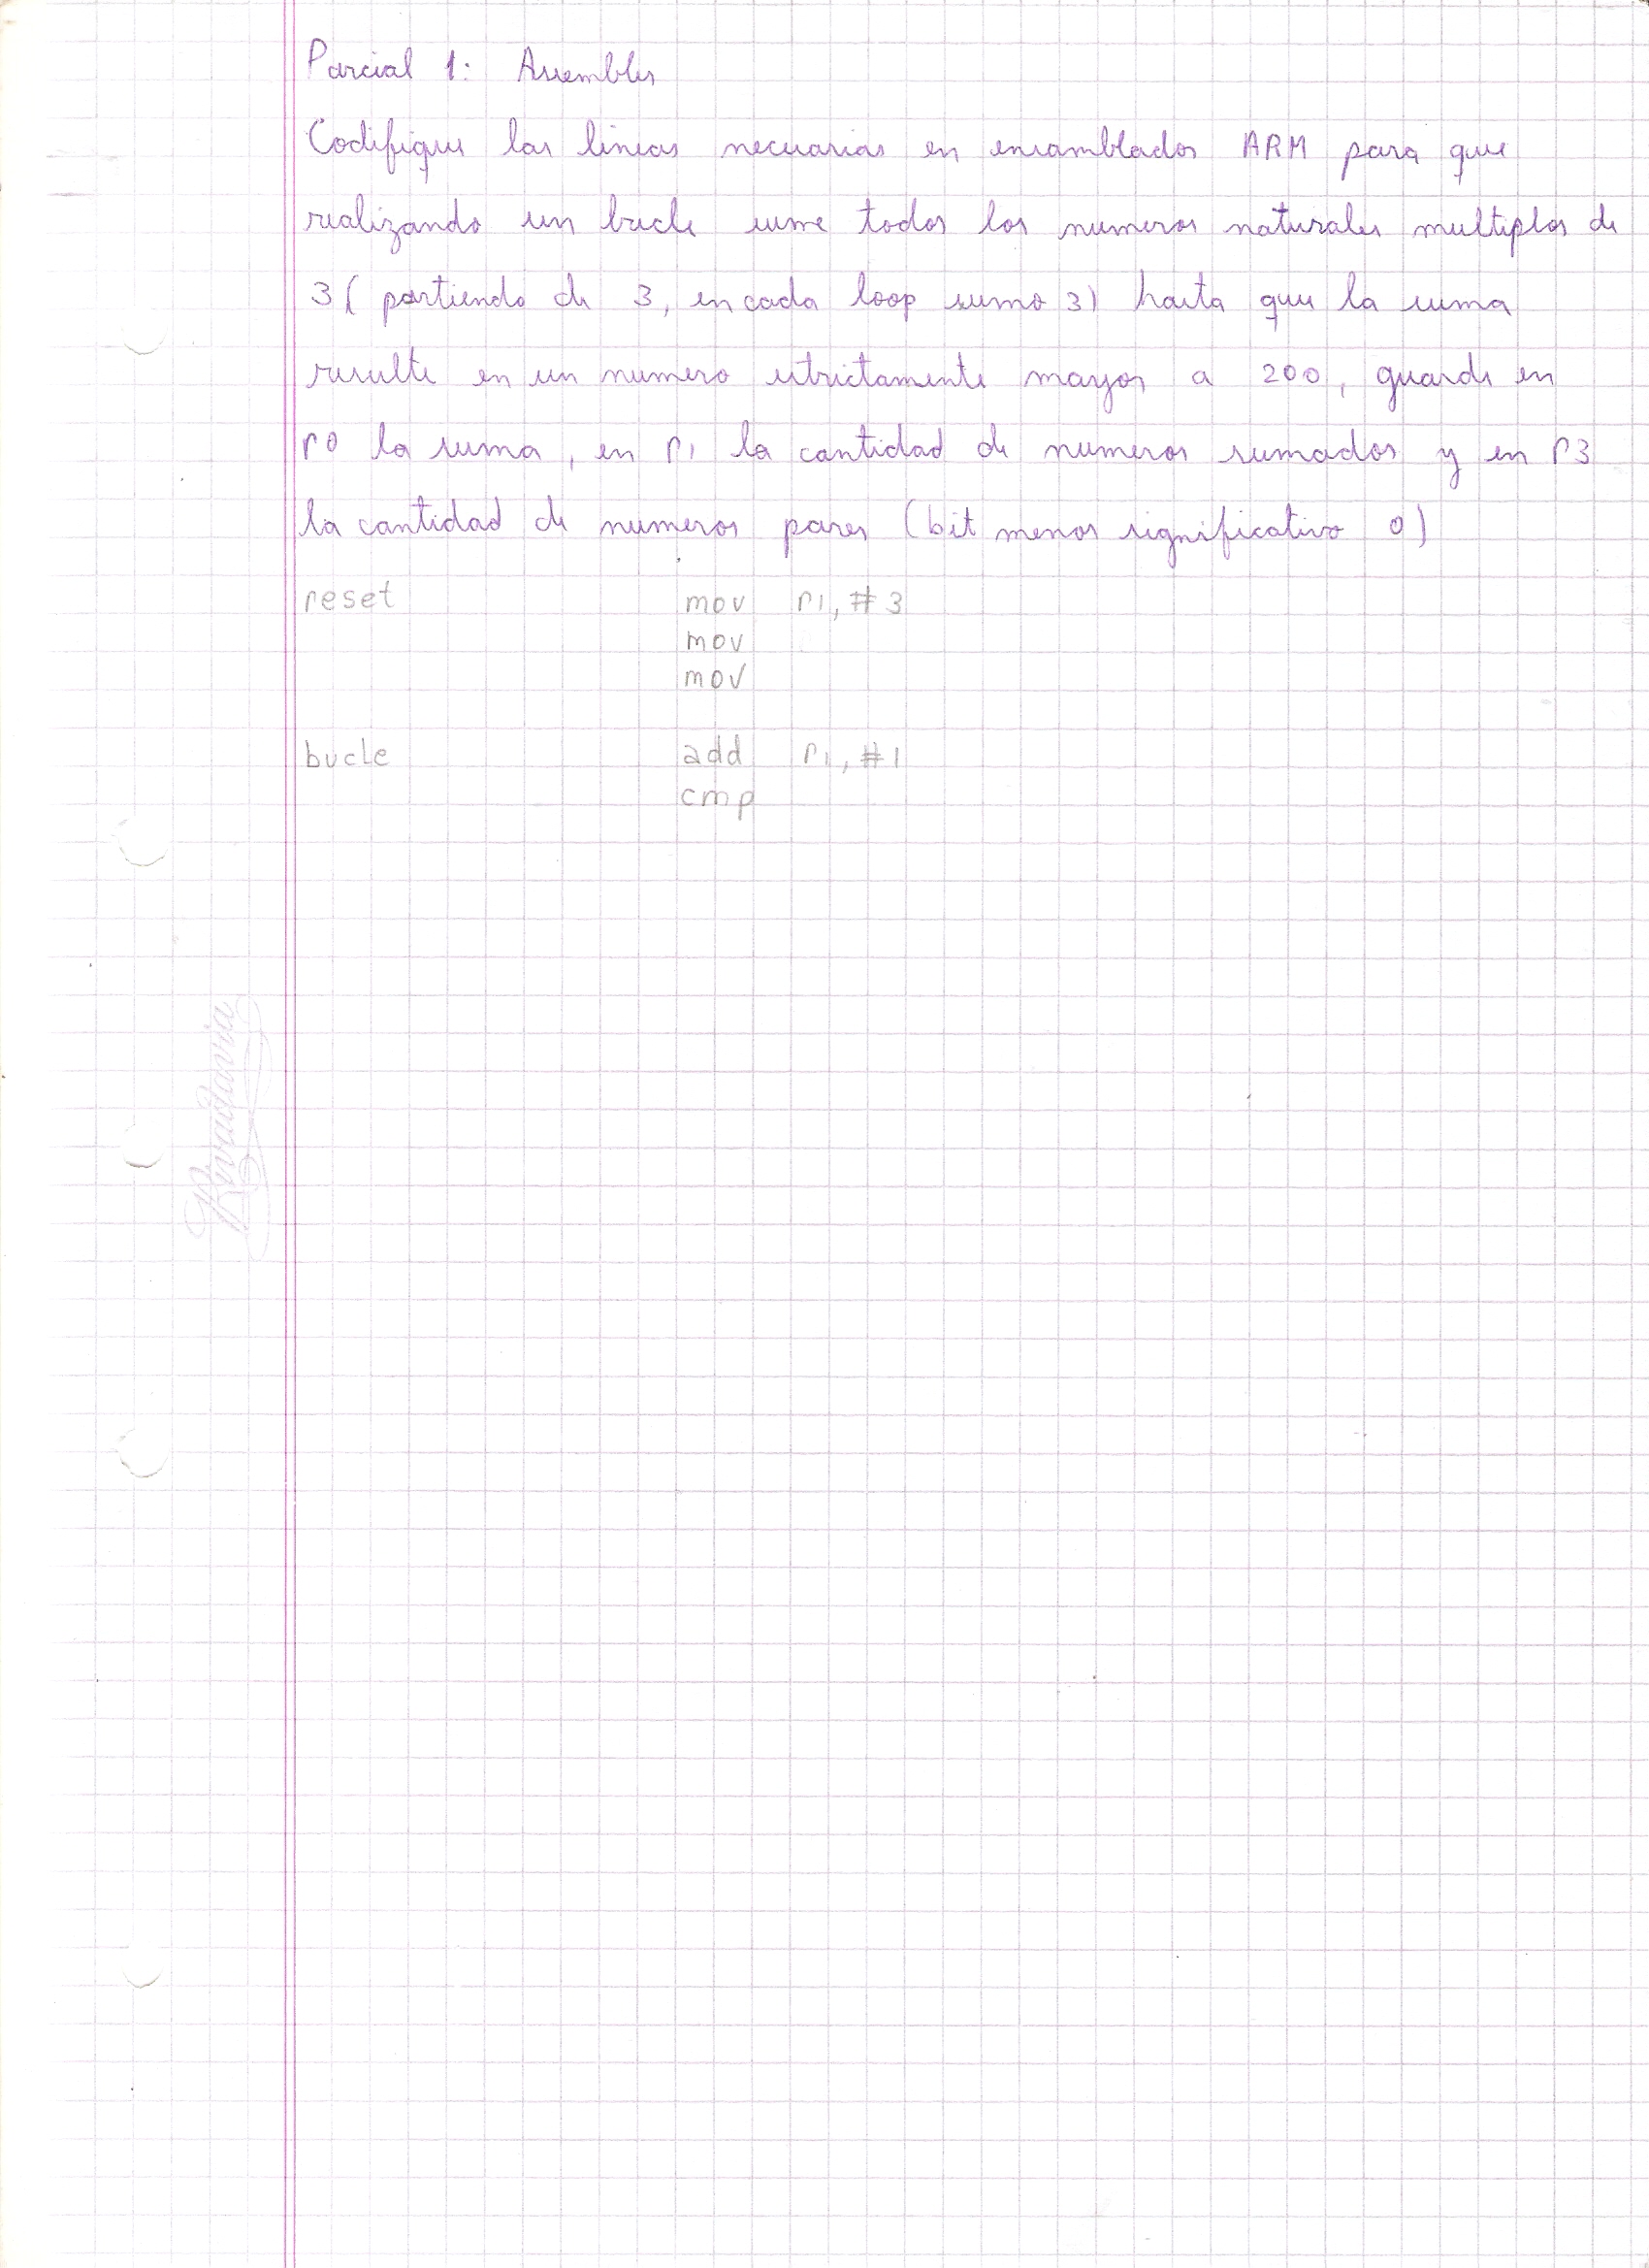 Parcial 1: Assembler
Codifique las lineas necesarias en ensamblador ARM para que
realizando un bucle sume todos los numeros naturales multiplos de
3 ( partiendo de 3, en cada loop sumo 3) hasta que la suma
resulte en un numero estrictamente mayor a 200, guarde en
r0 la suma, en r1 la cantidad de numeros sumados y en r3
la cantidad de numeros pares (bit menos significativo 0)
reset mov r1, #3
mov
mov
bucle add r1, #1
cmp
Rivadavia